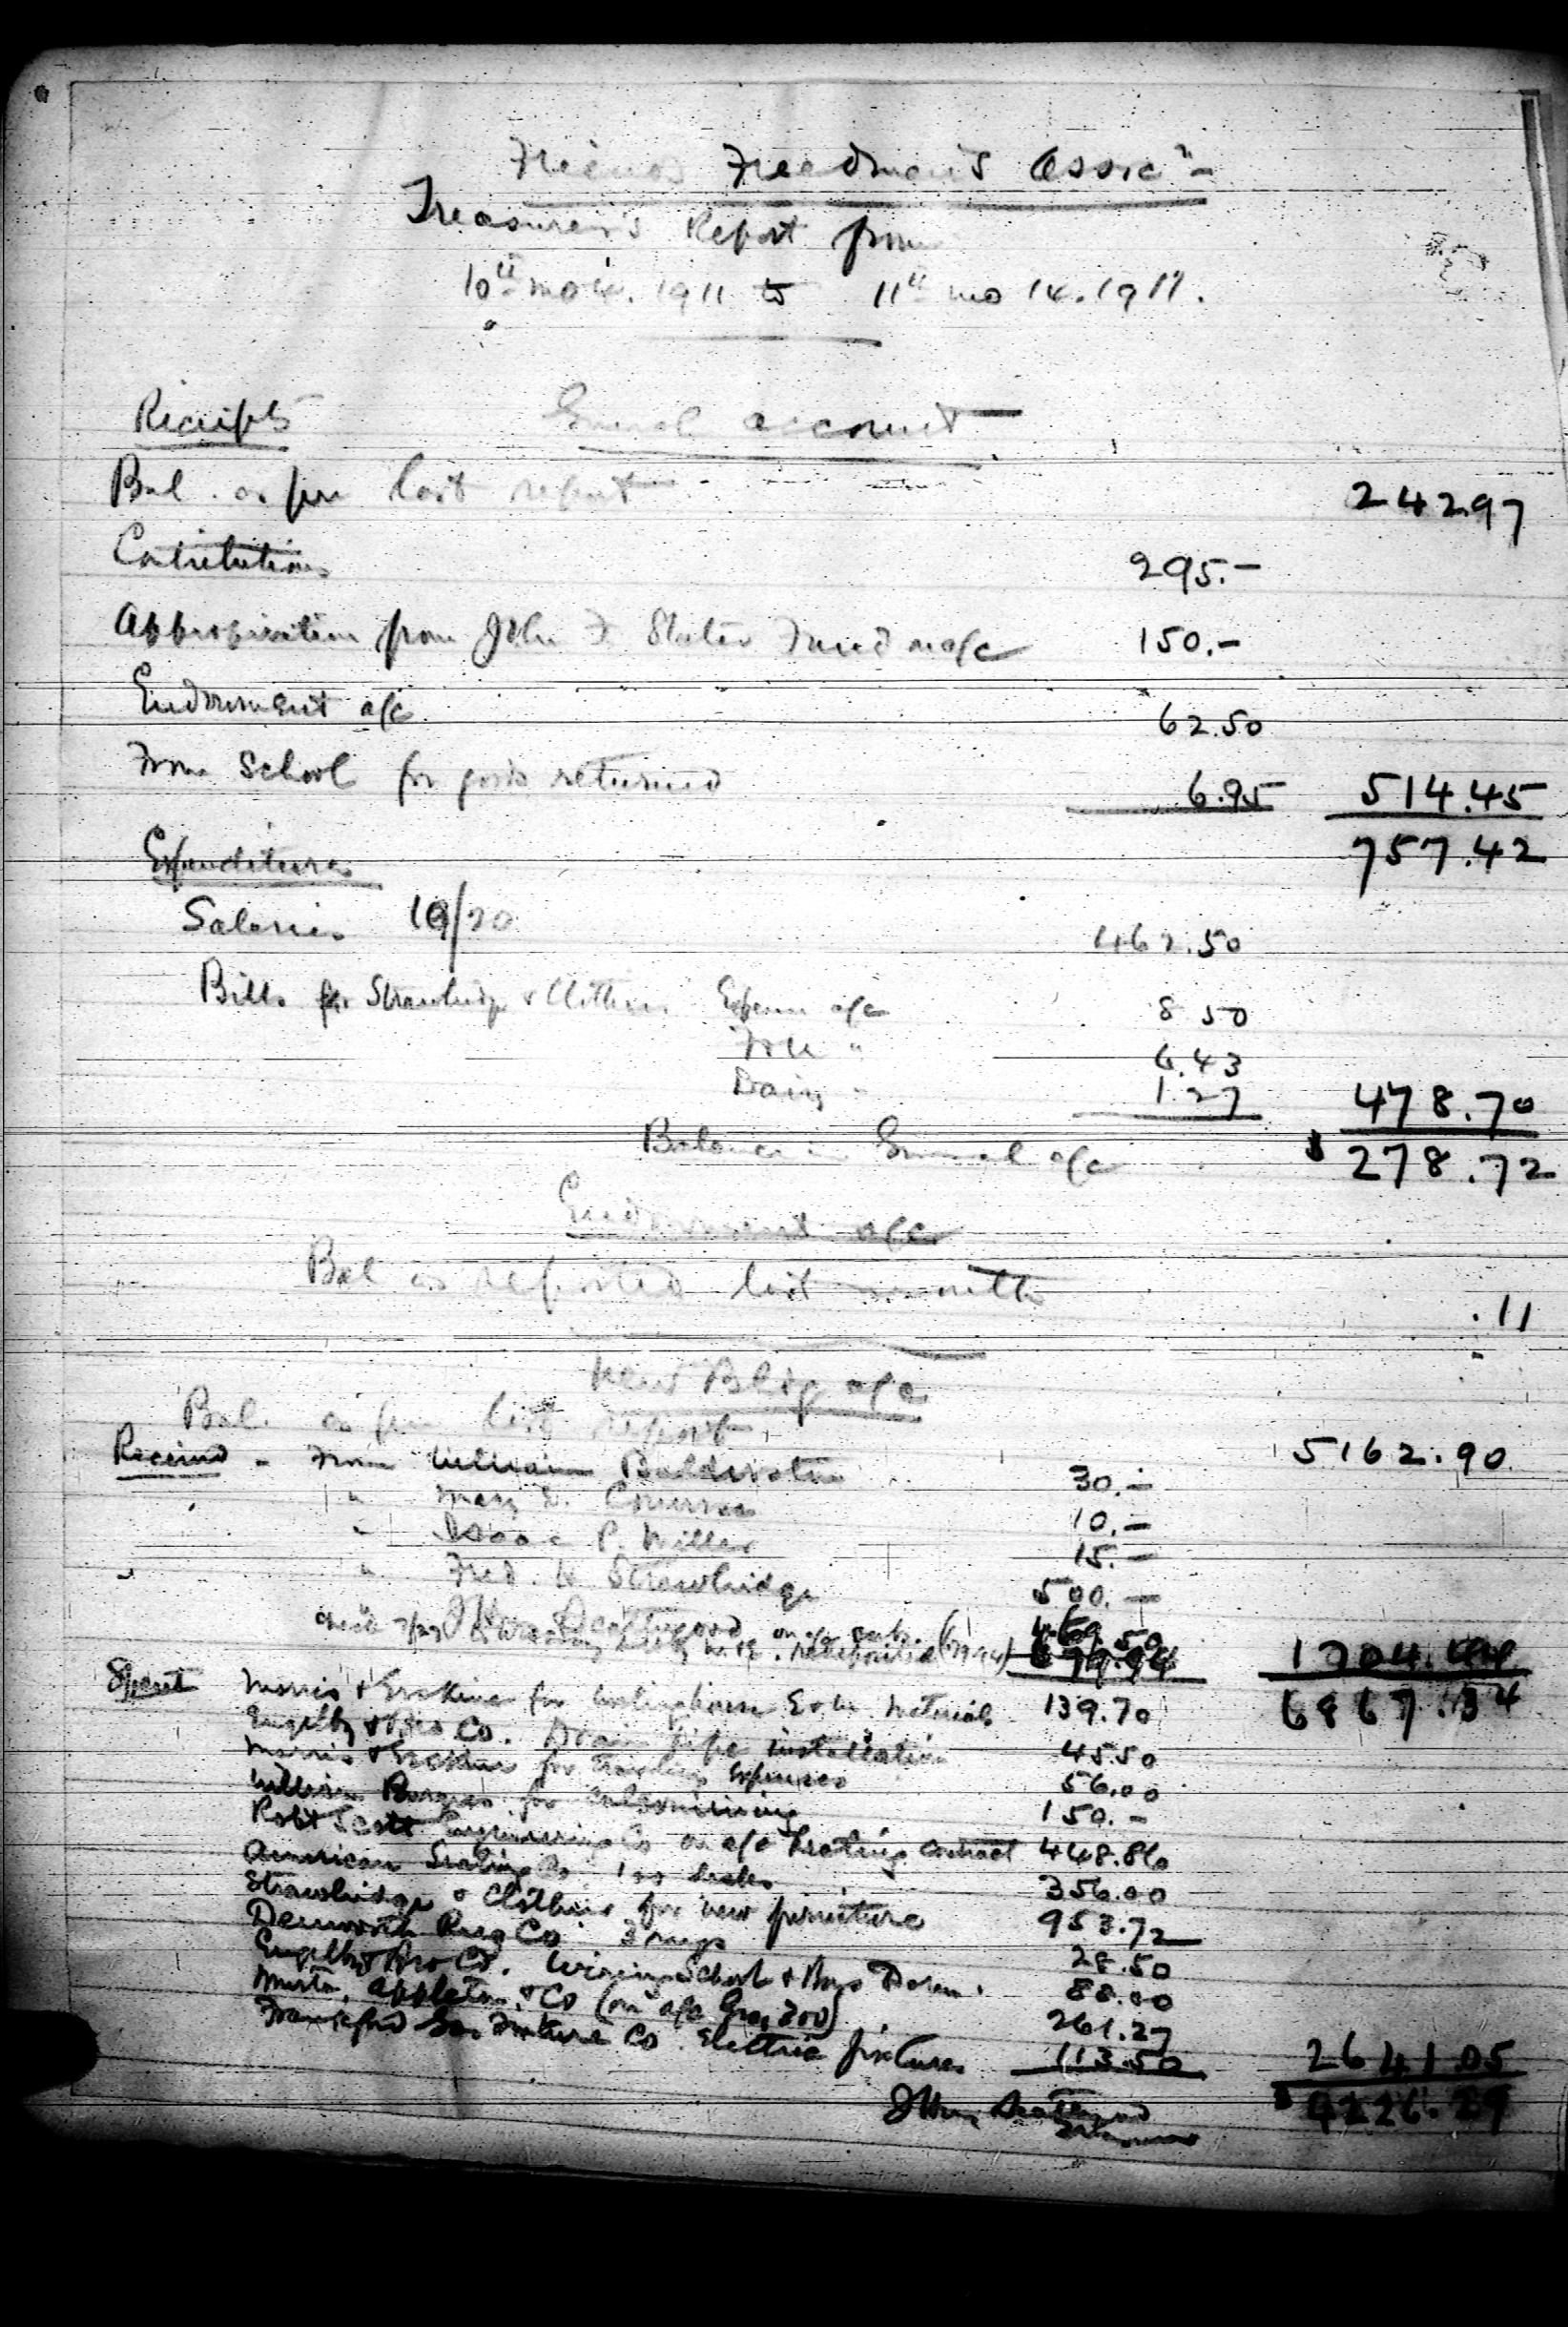 Friends Freedmen's Assocn
Treasurer's Report from
10th mo 14. 1911 to 11th mo 14. 1911.
Receipts General account
Bal. as per last report 242.97
Contributions 295.-
Appropriation from John F. Slater Fund on a/c 150.-
Endowment a/c 62.50
From School for goods returned 6.95 514.45
757.42
Expenditures
Salaries 10/20 462.50
Bills for Strawbridge & Clothier Expense a/c 8 50
" 6.43
Dairy " 1.27 478.70
Balance in General a/c $ 278.72
Endowment a/c
Bal as reported last month .11
New Bldg a/c
Bal. as per last report 5162.90
Received - From William Balderston 30.-
" Mary D. 10.-
" Isaac P. Miller 15.-
" Fred. H. Strawbridge 500.-
on a/c
1704.44
Spent Morris & Erskine for Westinghouse E & M. Materials 139.70 6867.34
& Bro Co. Drain Pipe installation 45.50
Morris & Erskine for Traveling Expenses 56.00
William for 150.-
Robt Scott Engineering Co on a/c heating contract 448.86
American Seating Co. 100 desks 356.00
Strawbridge & Clothier for new furniture 953.72
Rug Co 3 rugs 28.50
& Bro Co. Wiring School & Boys Dorm. 88.00
Appleton & Co (on a/c 261.27
Frankford Gas Fixture Co. Electric fixtures 113.50 2641.05
$ 4226.29
Treasurer